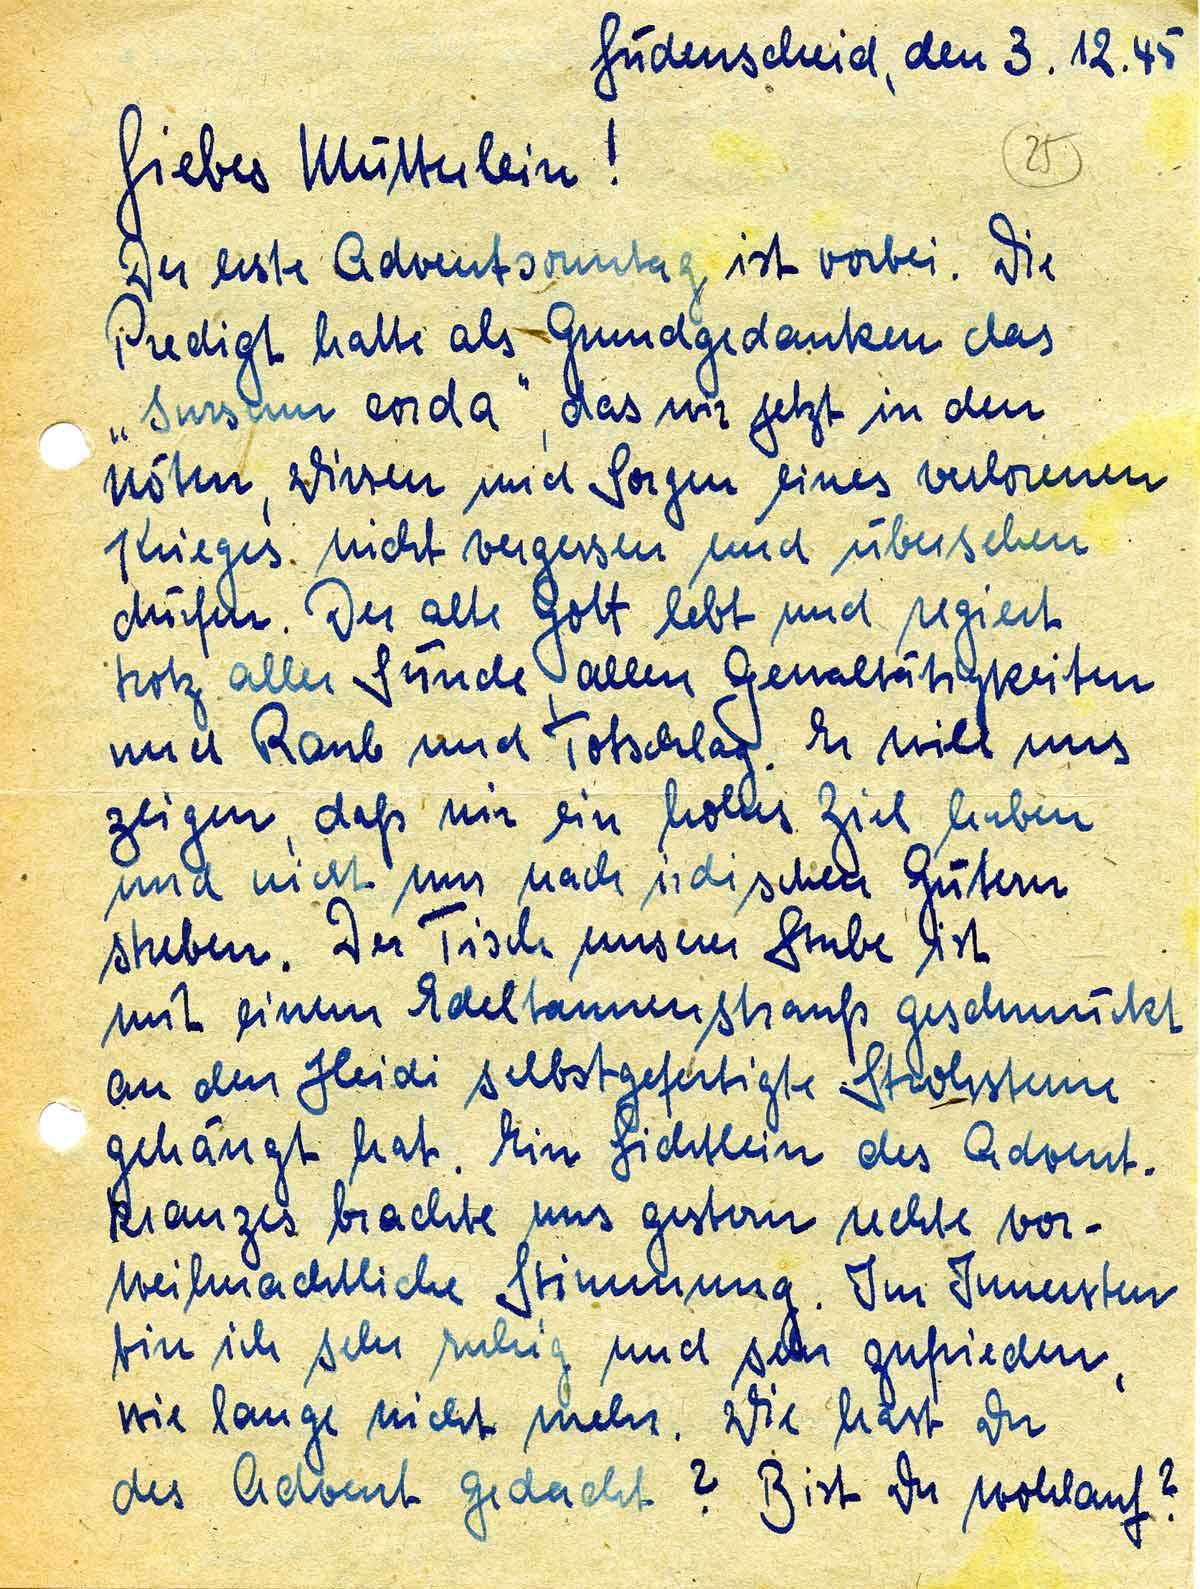 Lüdenscheid, den 3. 12. 45
25
Liebes Mütterlein!
Der erste Adventsonntag ist vorbei. Die
Predigt hatte als Grundgedanken das
„Sursum corda“, das wir jetzt in den
Nöten, Wirren und Sorgen eines verlorenen
Krieges nicht vergessen und übersehen
dürfen. Der alte Gott lebt und regiert
trotz aller Sünde, allen Gewaltätigkeiten
und Raub und Totschlag. Er will uns
zeigen, daß wir ein hohes Ziel haben
und nicht nur nach irdischen Gütern
streben. Der Tisch unserer Stube ist
mit einem Edeltannenstrauß geschmückt
an den Heidi selbstgefertigte Strohsterne
gehängt hat. Ein Lichtlein des Advent-
kranzes brachte uns gestern rechte vor-
weihnachtliche Stimmung. Im Innersten
bin ich sehr ruhig und sehr zufrieden,
wie lange nicht mehr. Wie hast Du
des Advent gedacht? Bist Du wohlauf?